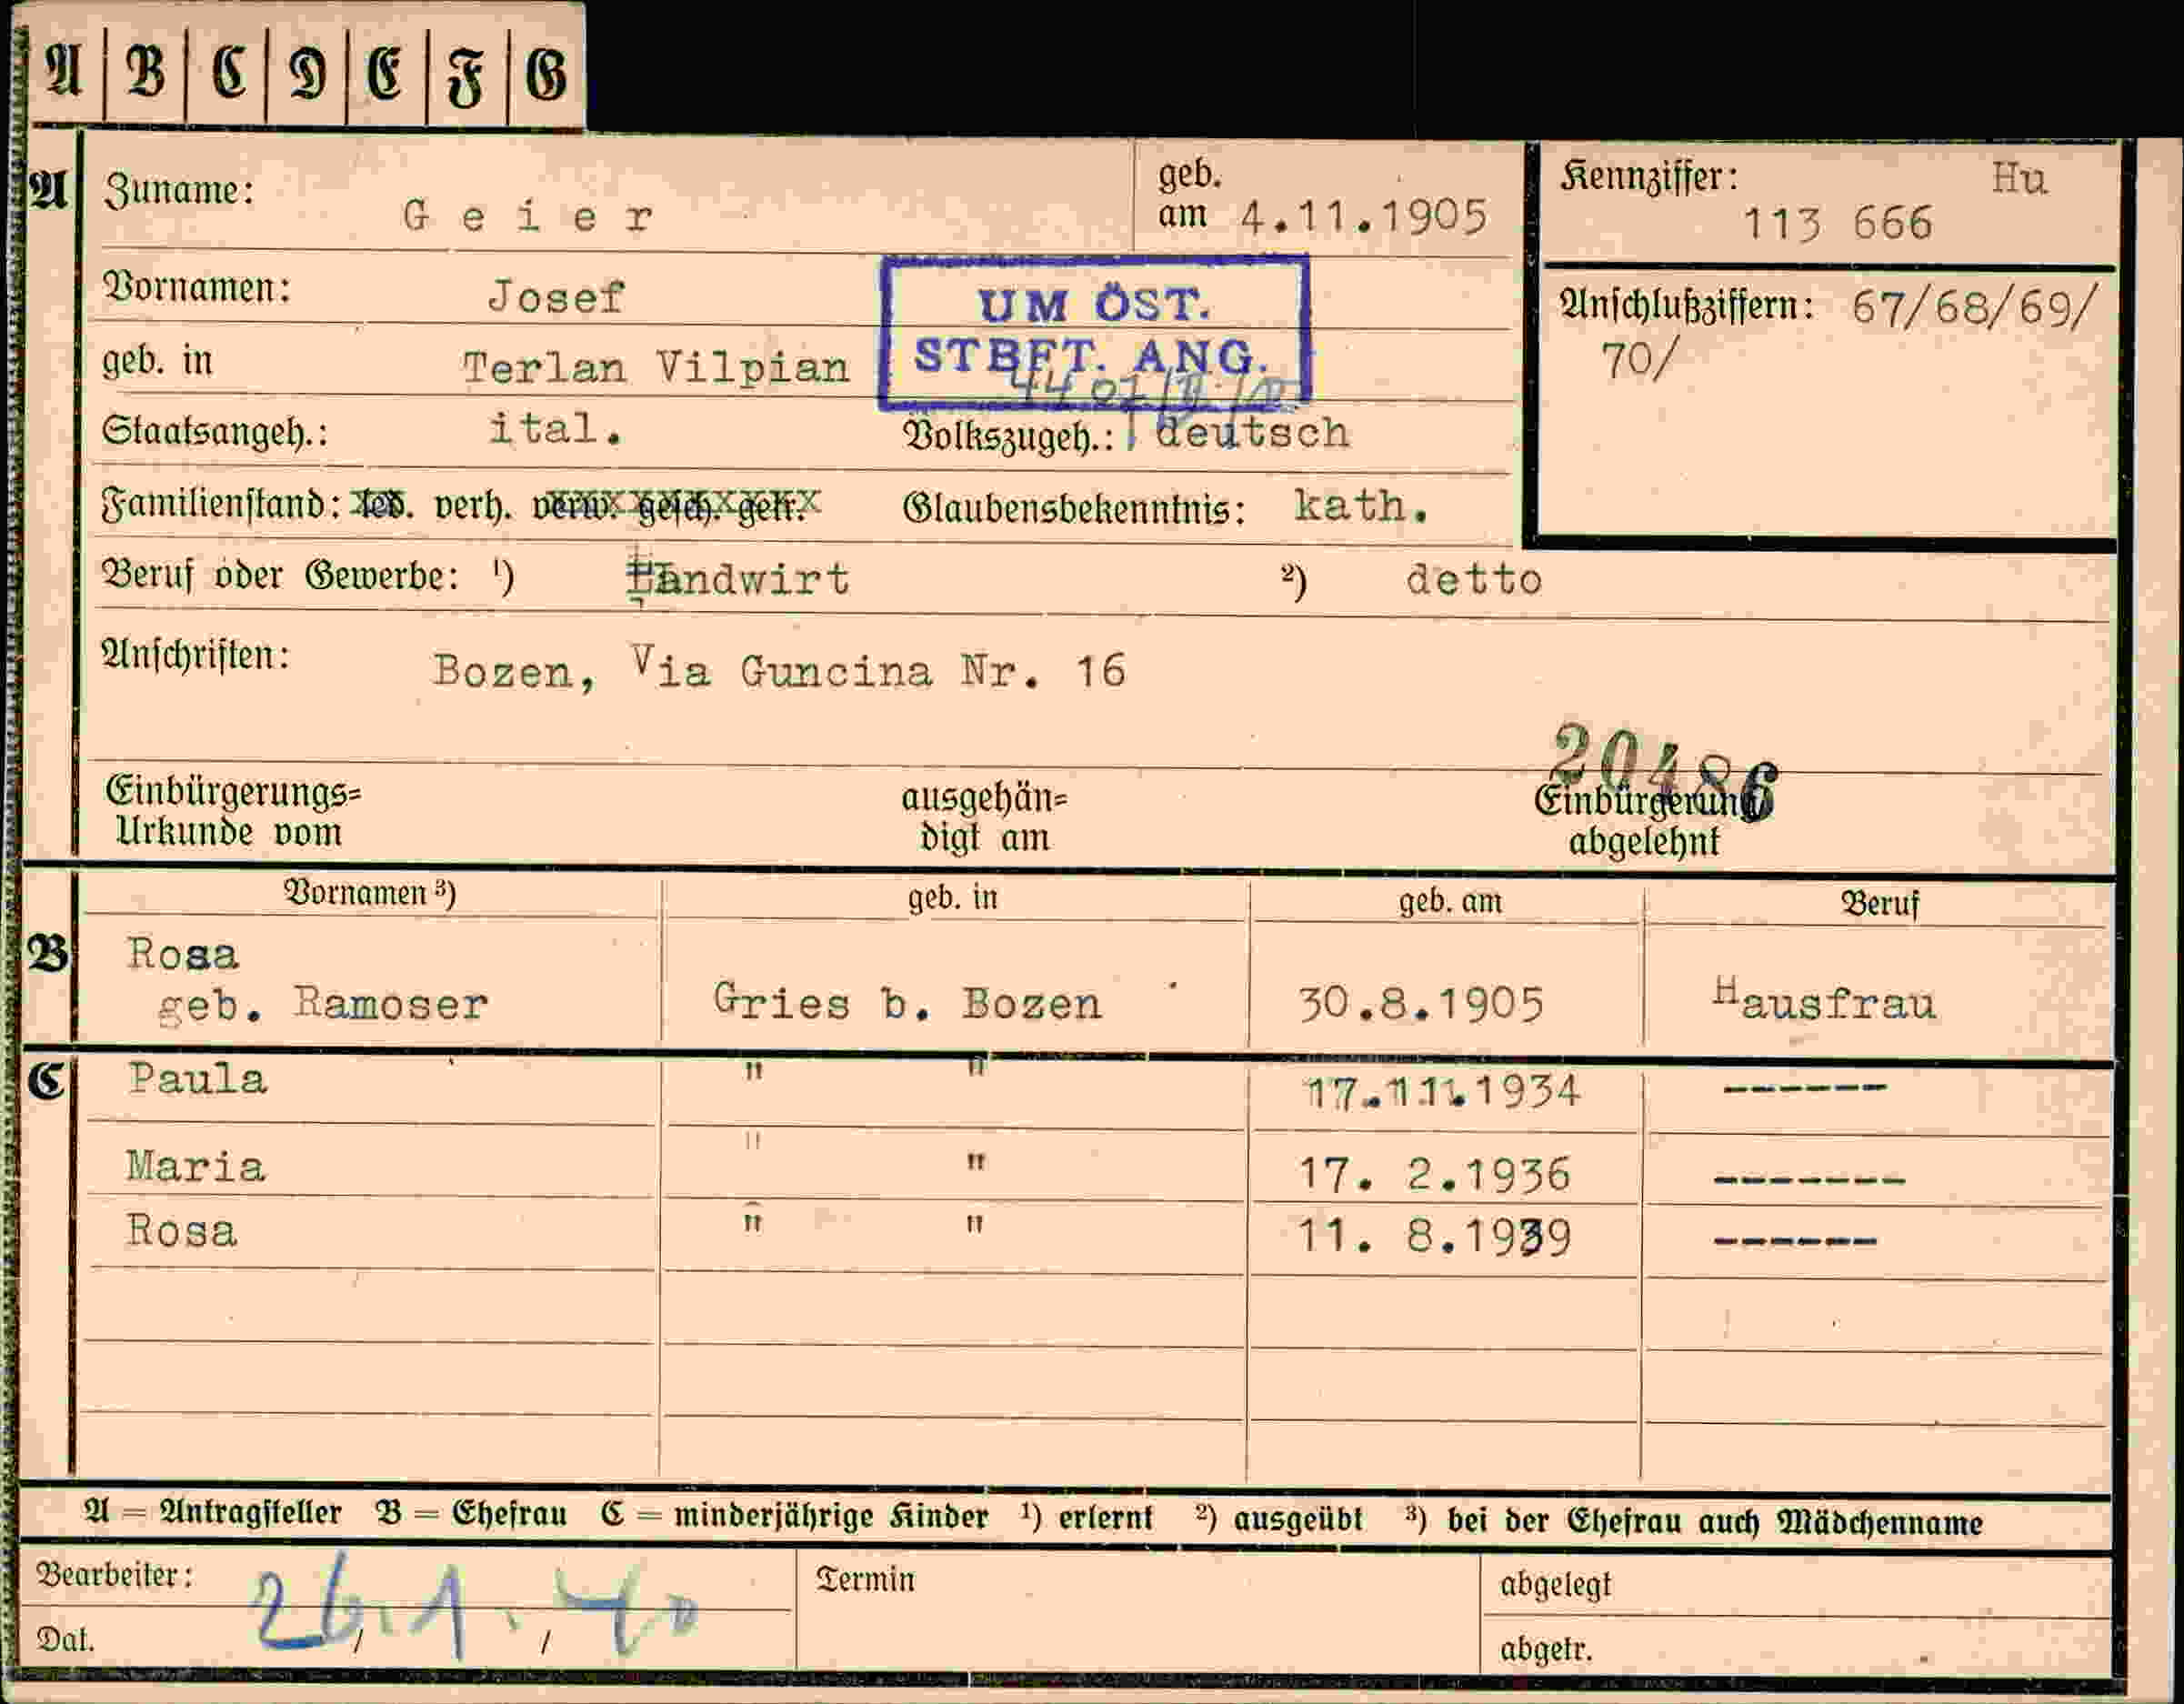 A B C D E F G
A Zuname: Geier geb. am 4.11.1905 Kennziffer: Hu
113 666
Vornamen: Josef
UM ÖST.
STBFT. ANG.
Anschlußziffern: 67/68/69/
70/
geb. in Terlan Vilpian
Staatsangeh.: ital. Volkszugeh.: deutsch
Familienstand: led. verh. verw. gesch. getr. Glaubensbekenntnis: kath.
Beruf oder Gewerbe: ¹) Landwirt ²) detto
Anschriften: Bozen, Via Guncina Nr. 16
20486
Einbürgerungs= ausgehän= Einbürgerung
Urkunde vom digt am abgelehnt
Vornamen ³) geb. in geb. am Beruf
B Rosa
geb. Ramoser Gries b. Bozen 30.8.1905 Hausfrau
C Paula " " 17.11.1934 ------
Maria " " 17. 2.1936 -------
Rosa " " 11. 8.1939 ------
A = Antragsteller B = Ehefrau C = minderjährige Kinder ¹) erlernt ²) ausgeübt ³) bei der Ehefrau auch Mädchenname
Bearbeiter: Termin abgelegt
Dat. 26.1.40 abgetr.